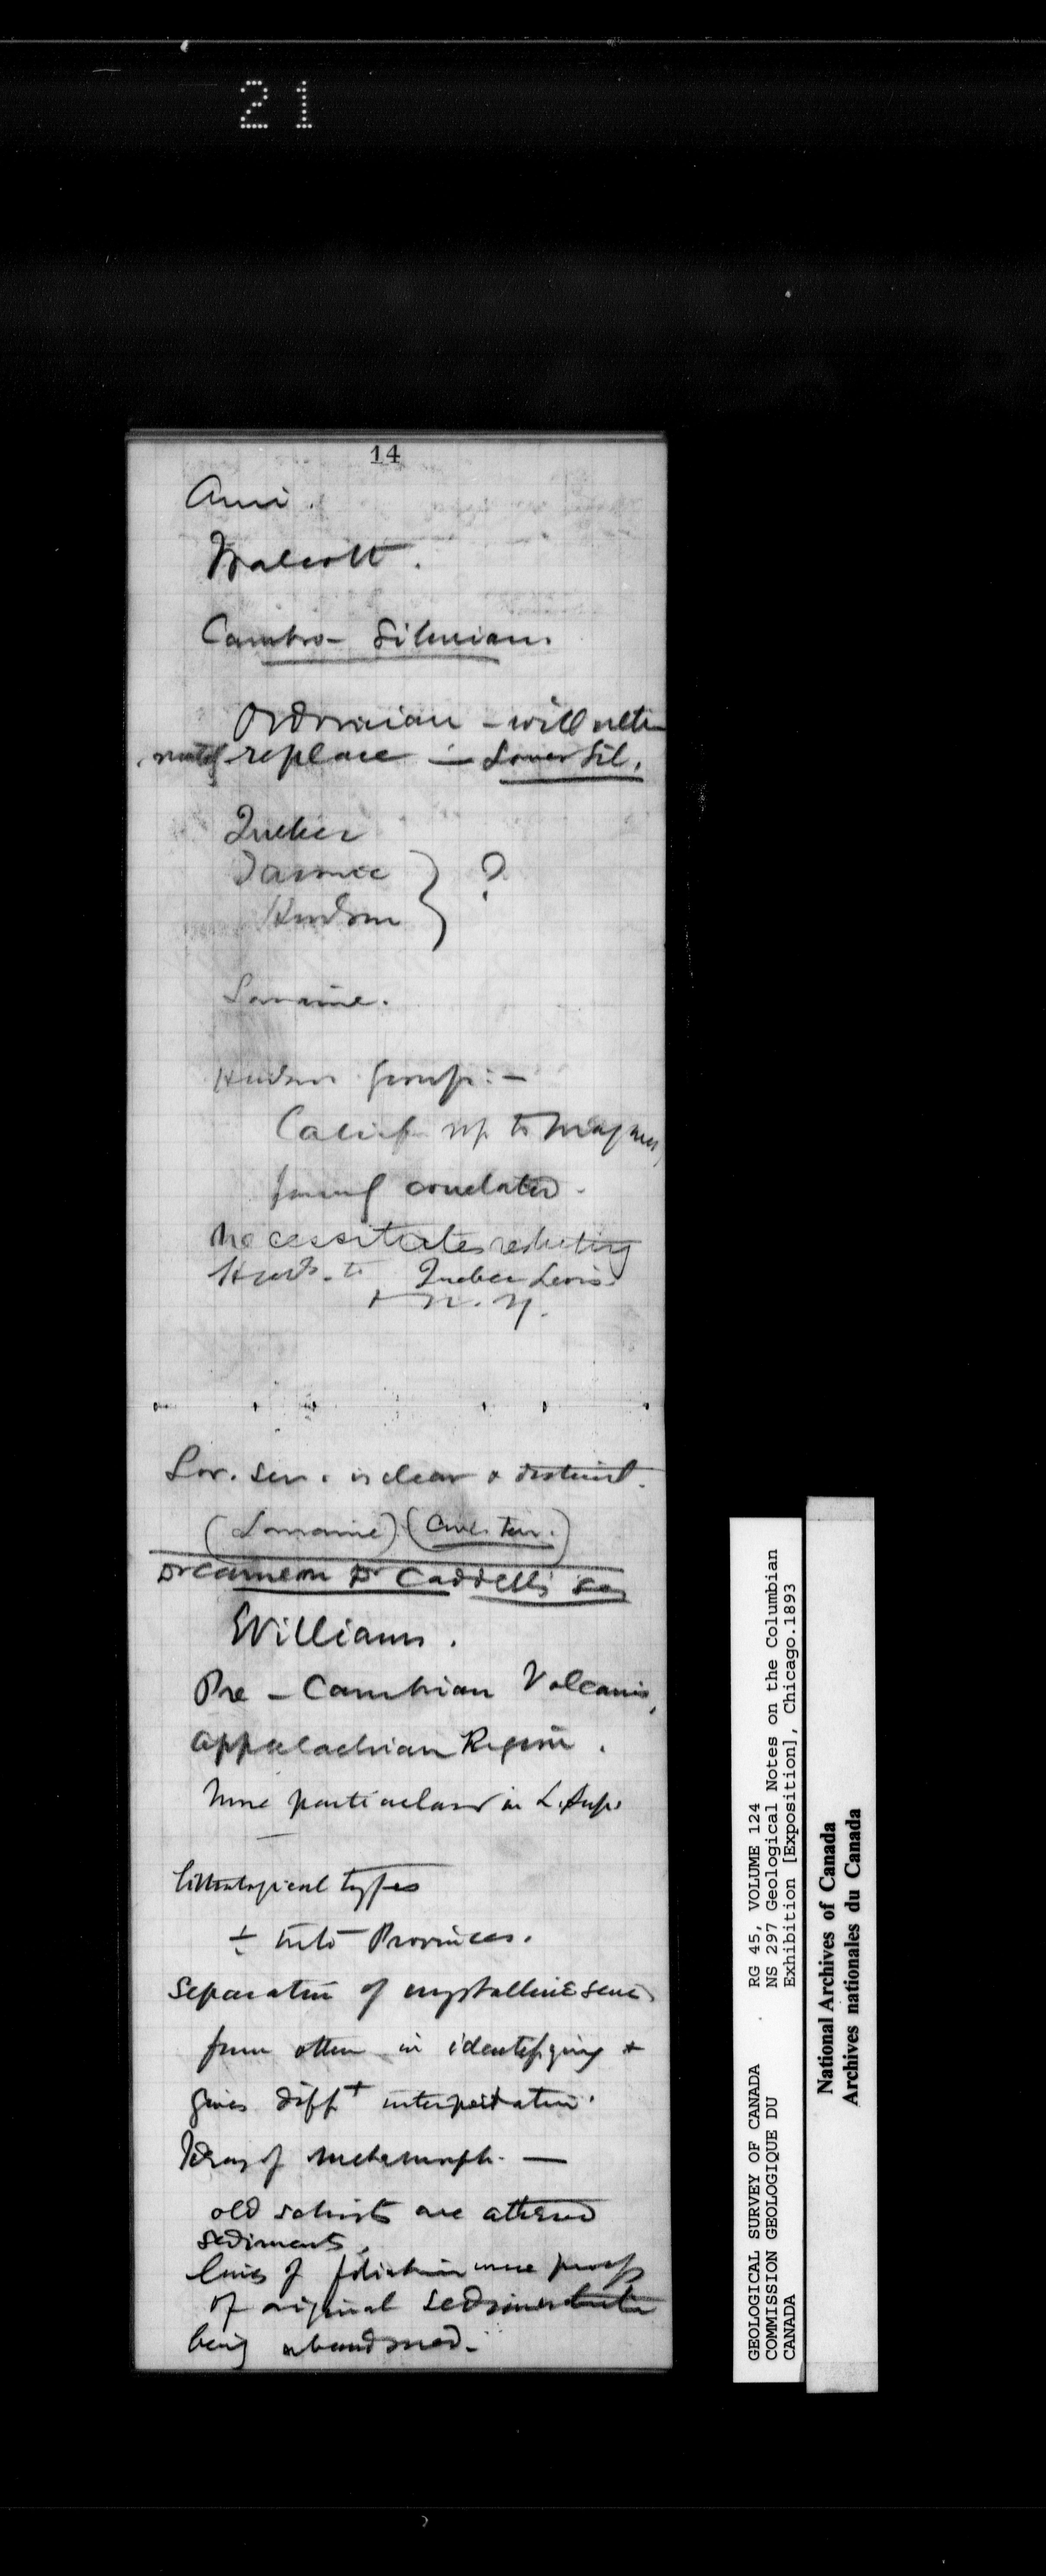 21
14
Ami.
Walcott.
Cambro-Silurian.
Ordovician - will ulti
mately replace - Lower Sil.
Quebec
Taconic
Hudson } ?
Lorraine.
Hudson group:-
up to
correlated.
necessitates
Huds. to Quebec Levis
+ N.Y.
Lor. is clear & distinct.
(Lorraine)
Dr Cameron Dr
Williams.
Pre-Cambrian Volcanics,
Appalachian Region.
More particular in L. Sup.
lithological types
± into Provinces.
Separation of crystalline series
from other in identifying &
gives diff^t interpretation.
Ideas of metamorph. —
old schists are altered
sediments,
lines of foliation were proofs
of original sedimentation
being abandoned.
GEOLOGICAL SURVEY OF CANADA
COMMISSION GEOLOGIQUE DU
CANADA
RG 45, VOLUME 124
NS 297 Geological Notes on the Columbian
Exhibition [Exposition], Chicago.1893
National Archives of Canada
Archives nationales du Canada